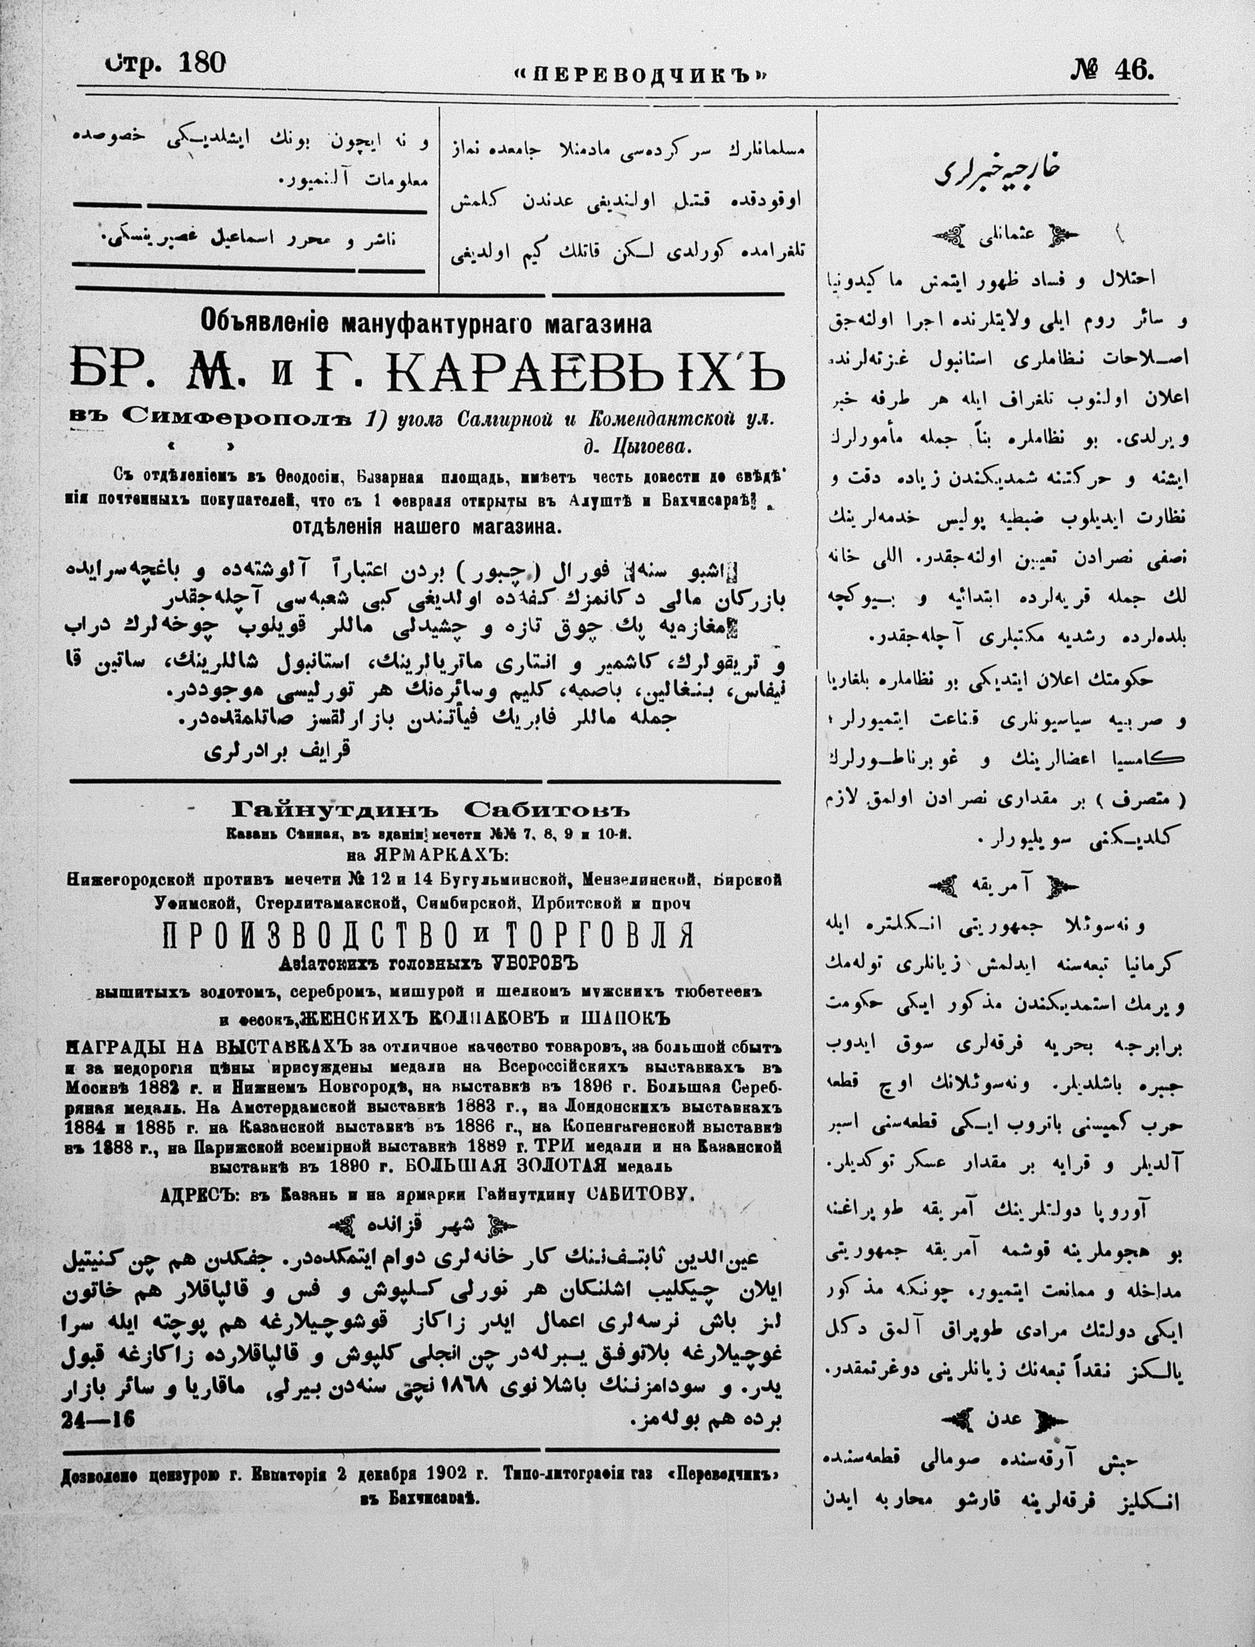 Стр. 180
«ПЕРЕВОДЧИКЪ»
№ 46.
خارجیه خبرلری
عثمانلی
احتلال و فساد ظهور ایتمش ماكیدونیا
و سائر روم ایلی ولایتلرنده اجرا اولنه‌جق
اصلاحات نظاملری استانبول غزته‌لرنده
اعلان اولنوب تلغراف ایله هر طرفه خبر
ویرلدی. بو نظاملره بناً جمله مأمورلرك
ایشنه و حركتنه شمدیكندن زیاده دقت و
نظارت ایدیلوب ضبطیه پولیس خدمه‌لرینك
نصفی نصرادن تعیین اولنه‌جقدر. اللی خانه
لك جمله قریه‌لرده ابتدائیه و بیوكچه
بلده‌لرده رشدیه مكتبلری آچله‌جقدر.
حكومتك اعلان ایتدیكی بو نظاملره بلغاریا
و صربیه سیاسیونلری قناعت ایتمیورلر؛
كامسیا اعضالرینك و غوبرناطورلرك
(متصرف) بر مقداری نصرادن اولمق لازم
كلدیكنی سویلیورلر.
آمریقه
ونه‌سوئلا جمهوریتی انكلتره ایله
كرمانیا تبعه‌سنه ایدلمش زیانلری توله‌مك
ویرمك استمدیكندن مذكور ایكی حكومت
برابرجه بحریه فرقه‌لری سوق ایدوب
جبره باشلدیلر. ونه‌سوئلانك اوچ قطعه
حرب كمیسنی باتروب ایكی قطعه‌سنی اسیر
آلدیلر و قرایه بر مقدار عسكر توكدیلر.
آوروپا دولتلرینك آمریقه طوپراغنه
بو هجوملرینه قوشمه آمریقه جمهوریتی
مداخله و ممانعت ایتمیور. چونكه مذكور
ایكی دولتك مرادی طوپراق آلمق دكل
یالكز نقداً تبعه‌نك زیانلرینی دوغرتمقدر.
عدن
حبش آرقه‌سنده صومالی قطعه‌سنده
انكلیز فرقه‌لرینه قارشو محاربه ایدن
مسلمانلرك سركرده‌سی مادمنلا جامعده نماز
اوقودقده قتل اولندیغی عدندن كلمش
تلغرامده كورلدی لكن قاتلك كیم اولدیغی
و نه ایچون بونك ایشلدیكی خصوصده
معلومات آلنمیور.
ناشر و محرر اسماعیل غصبرینسكی.
Объявленіе мануфактурнаго магазина
БР. М. и Г. КАРАЕВЫХЪ
въ Симферополѣ 1) уголъ Салгирной и Комендантской ул.
« » д. Цыгоева.
Съ отдѣленіемъ въ Ѳеодосіи, Базарная площадь, имѣетъ честь довести до свѣдѣ
нія почтенныхъ покупателей, что съ 1 февраля открыты въ Алуштѣ и Бахчисараѣ
отдѣленія нашего магазина.
اشبو سنه فورال (چبور) بردن اعتباراً آلوشته‌ده و باغچه‌سرایده
بازركان مالی دكانمزك كفه‌ده اولدیغی كبی شعبه‌سی آچله‌جقدر
مغازه‌یه پك چوق تازه و چشیدلی ماللر قویلوب چوخه‌لرك دراب
و تریقولرك، كاشمیر و انتاری ماتریالرینك، استانبول شاللرینك، ساتین قا
نیفاس، بنغالین، باصمه، كلیم وسائره‌نك هر تورلیسی موجوددر.
جمله ماللر فابریك فیأتندن بازارلقسز صاتلمقده‌در.
قرایف برادرلری
Гайнутдинъ Сабитовъ
Казань Сѣнная, въ зданіи мечети №№ 7, 8, 9 и 10-й.
на ЯРМАРКАХЪ:
Нижегородской противъ мечети № 12 и 14 Бугульминской, Мензелинской, Бирской
Уфимской, Стерлитамакской, Симбирской, Ирбитской и проч
ПРОИЗВОДСТВО и ТОРГОВЛЯ
Азіатскихъ головныхъ УБОРОВЪ
вышитыхъ золотомъ, серебромъ, мишурой и шелкомъ мужскихъ тюбетеекъ
и фесокъ, ЖЕНСКИХЪ КОЛПАКОВЪ и ШАПОКЪ
НАГРАДЫ НА ВЫСТАВКАХЪ за отличное качество товаровъ, за большой сбытъ
и за недорогія цѣны присуждены медали на Всероссійскихъ выставкахъ въ
Москвѣ 1882 г. и Нижнемъ Новгородѣ, на выставкѣ въ 1896 г. Большая Сереб-
ряная медаль. На Амстердамской выставкѣ 1883 г., на Лондонскихъ выставкахъ
1884 и 1885 г. на Казанской выставкѣ въ 1886 г., на Копенгагенской выставкѣ
въ 1888 г., на Парижской всемірной выставкѣ 1889 г. ТРИ медали и на Казанской
выставкѣ въ 1890 г. БОЛЬШАЯ ЗОЛОТАЯ медаль
АДРЕСЪ: въ Казань и на ярмарки Гайнутдину САБИТОВУ.
شهر قزانده
عین‌الدین ثابتف‌ننك كار خانه‌لری دوام ایتمكده‌در. جفكدن هم چن كنیتیل
ایلان چیكلیب اشلنكان هر نورلی كلپوش و فس و قالپاقلار هم خاتون
لنر باش نرسه‌لری اعمال ایدر زاكاز قوشوچیلارغه هم پوچته ایله سرا
غوچیلارغه بلاتوفق یبرله‌در چن انجلی كلپوش و قالپاقلارده زاكازغه قبول
یدر. و سودامزننك باشلانوی ۱۸۶۸ نچی سنه‌دن بیرلی ماقاریا و سائر بازار
برده هم بوله‌مز.
24—16
Дозволено цензурою г. Евпаторія 2 декабря 1902 г. Типо-литографія газ «Переводчикъ»
въ Бахчисараѣ.